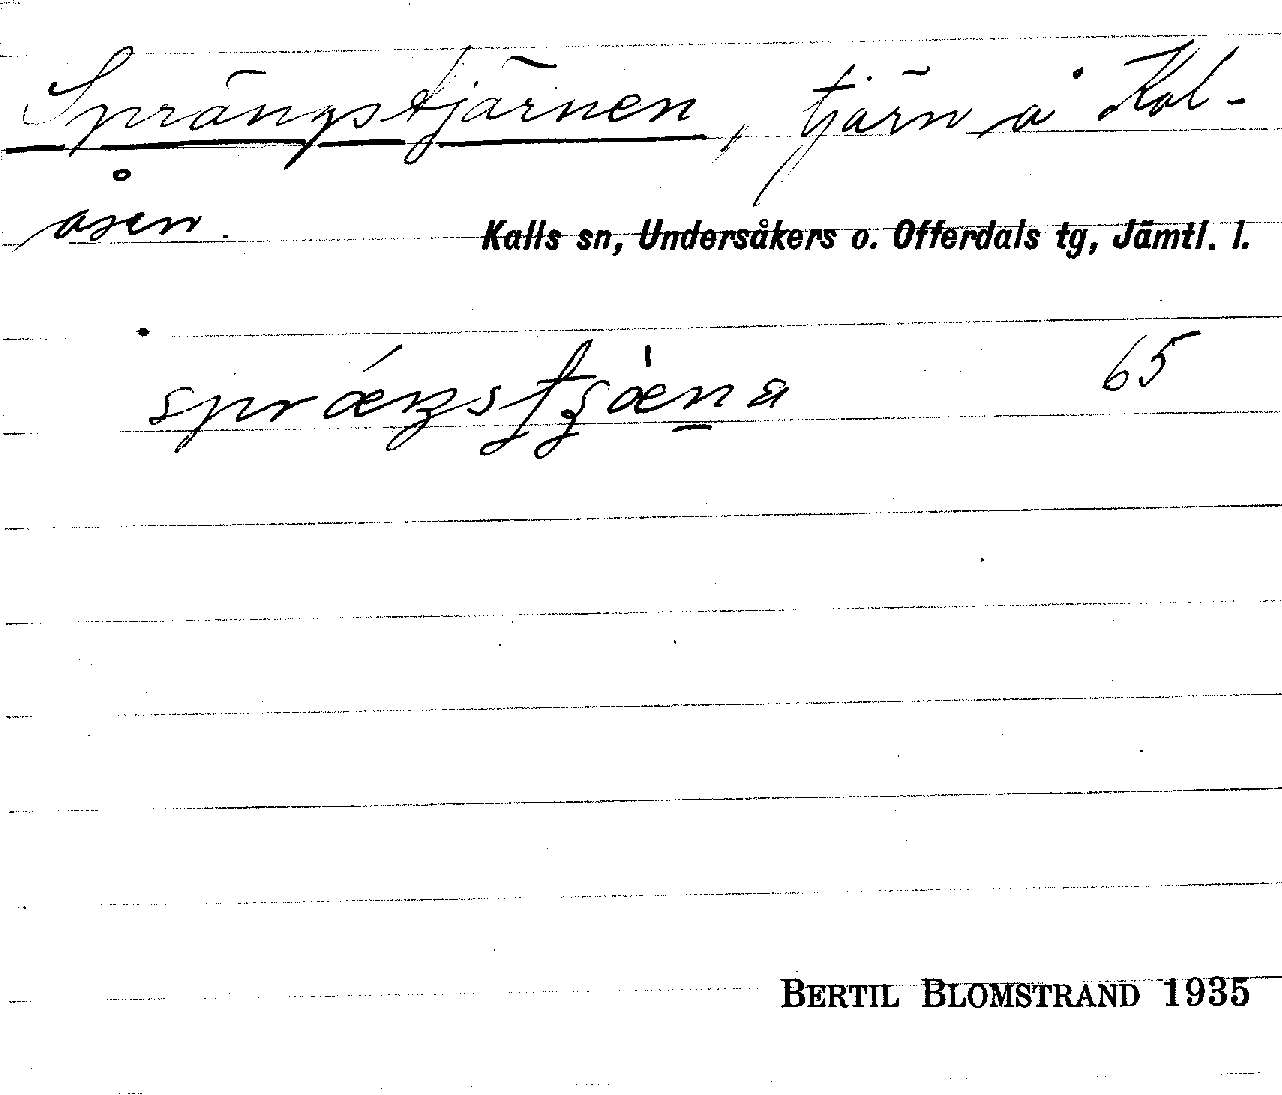 Sprängstjärnen, tjärn å Kol-
åsen.
Kalls sn, Undersåkers o. Offerdals tg, Jämtl. l.
65
BERTIL BLOMSTRAND 1935